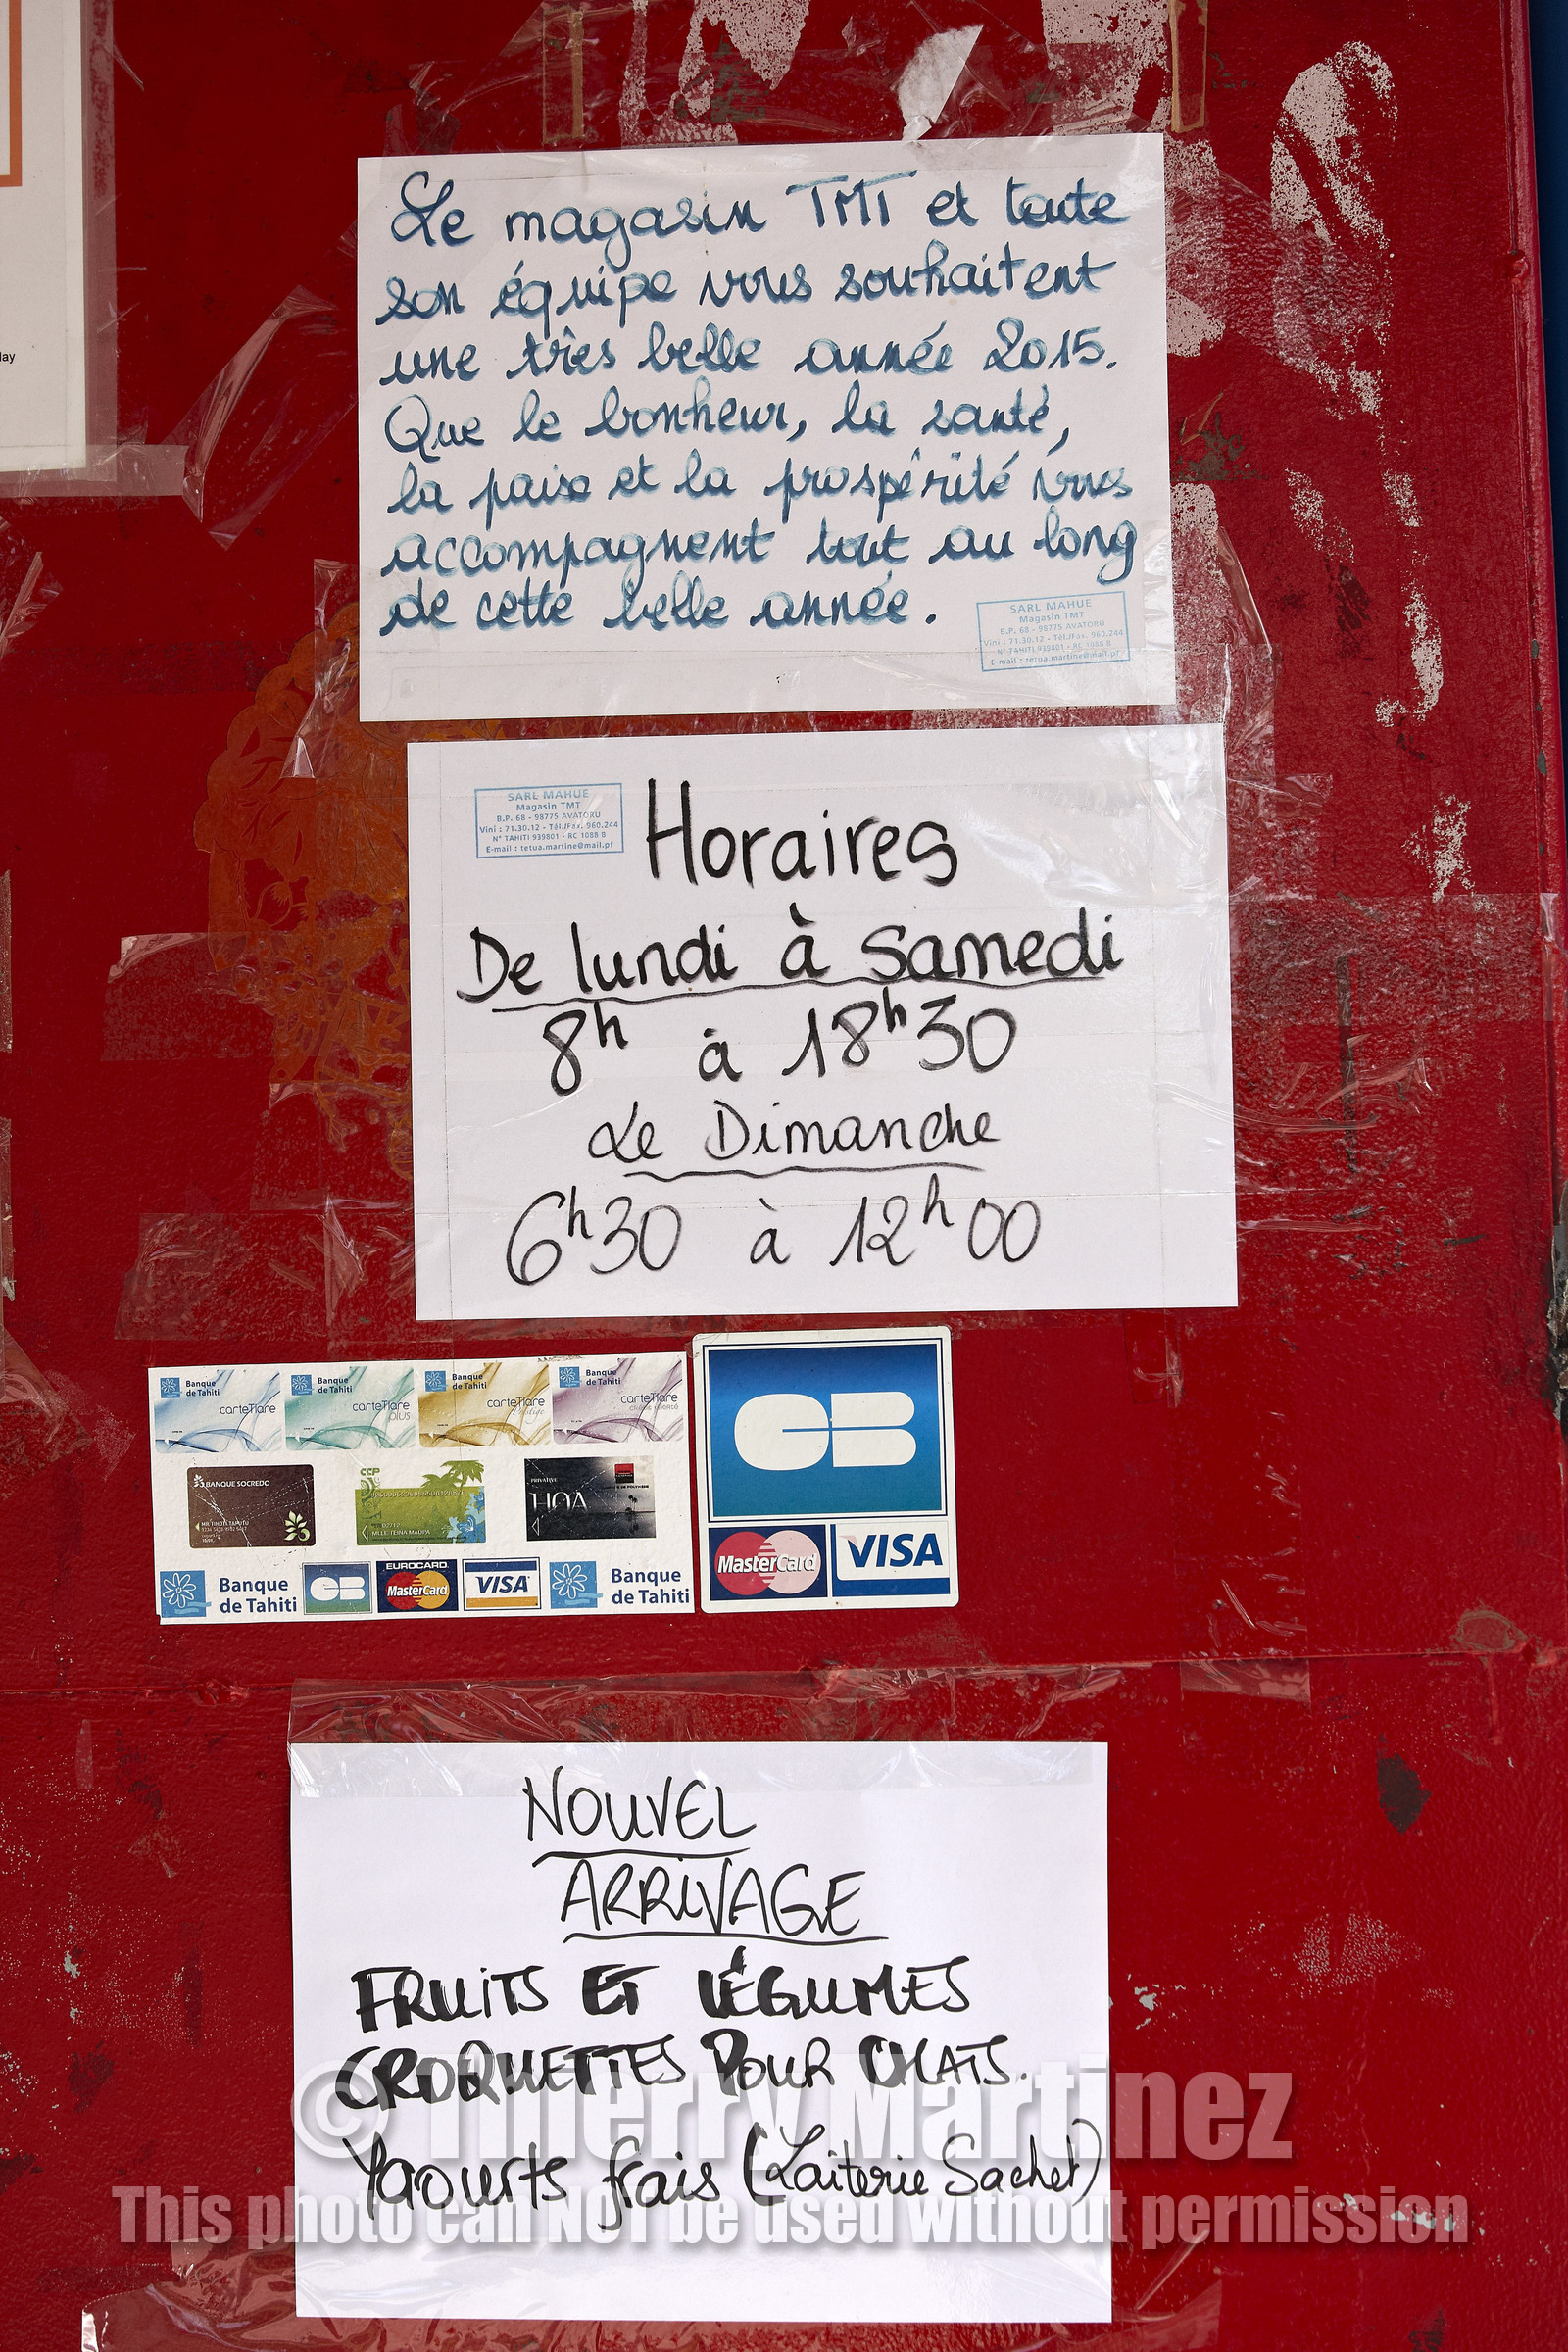 lay
Le magasin TMT et toute
son équipe vous souhaitent
une très belle année 2015.
Que le bonheur, la santé,
la paise et la prospérité vous
accompagnent tout au long
de cette belle année.
SARL MAHUE
Magasin TMT
B.P. 68 - 98775 AVATORU
Vini : 71.30.12 - Tél./Fax. 960.244
N° TAHITI 939801 - RC 1088 B
E-mail : tetua.martine@mail.pf
SARL MAHUE
Magasin TMT
B.P. 68 - 98775 AVATORU
Vini : 71.30.12 - Tél./Fax. 960.244
N° TAHITI 939801 - RC 1088 B
E-mail : tetua.martine@mail.pf
Horaires
De lundi à Samedi
8h à 18h30
Le Dimanche
6h30 à 12h00
Banque
de Tahiti
carteTiare
Banque
de Tahiti
carteTiare
plus
Banque
de Tahiti
carteTiare
Prestige
Banque
de Tahiti
carteTiare
BANQUE SOCREDO
CCP
MLLE TEINA MAUPA
PRIVATIVE
HOA
Banque
de Tahiti
CB
EUROCARD
MasterCard
VISA
Banque
de Tahiti
CB
MasterCard
VISA
NOUVEL
ARRIVAGE
FRUITS ET LÉGUMES
CROQUETTES POUR CHATS.
Yaourts frais (Laiterie Sachet)
© Thierry Martinez
This photo can NOT be used without permission